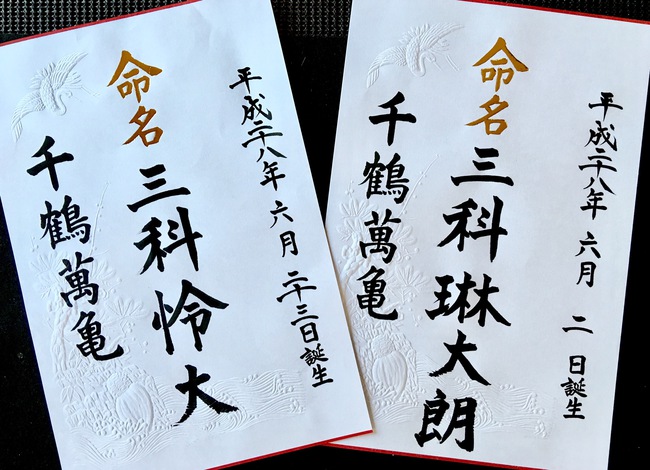 平成二十八年 六月 二十三日誕生
命名 三科怜大
千鶴萬亀
平成二十八年 六月 二日誕生
命名 三科琳大朗
千鶴萬亀